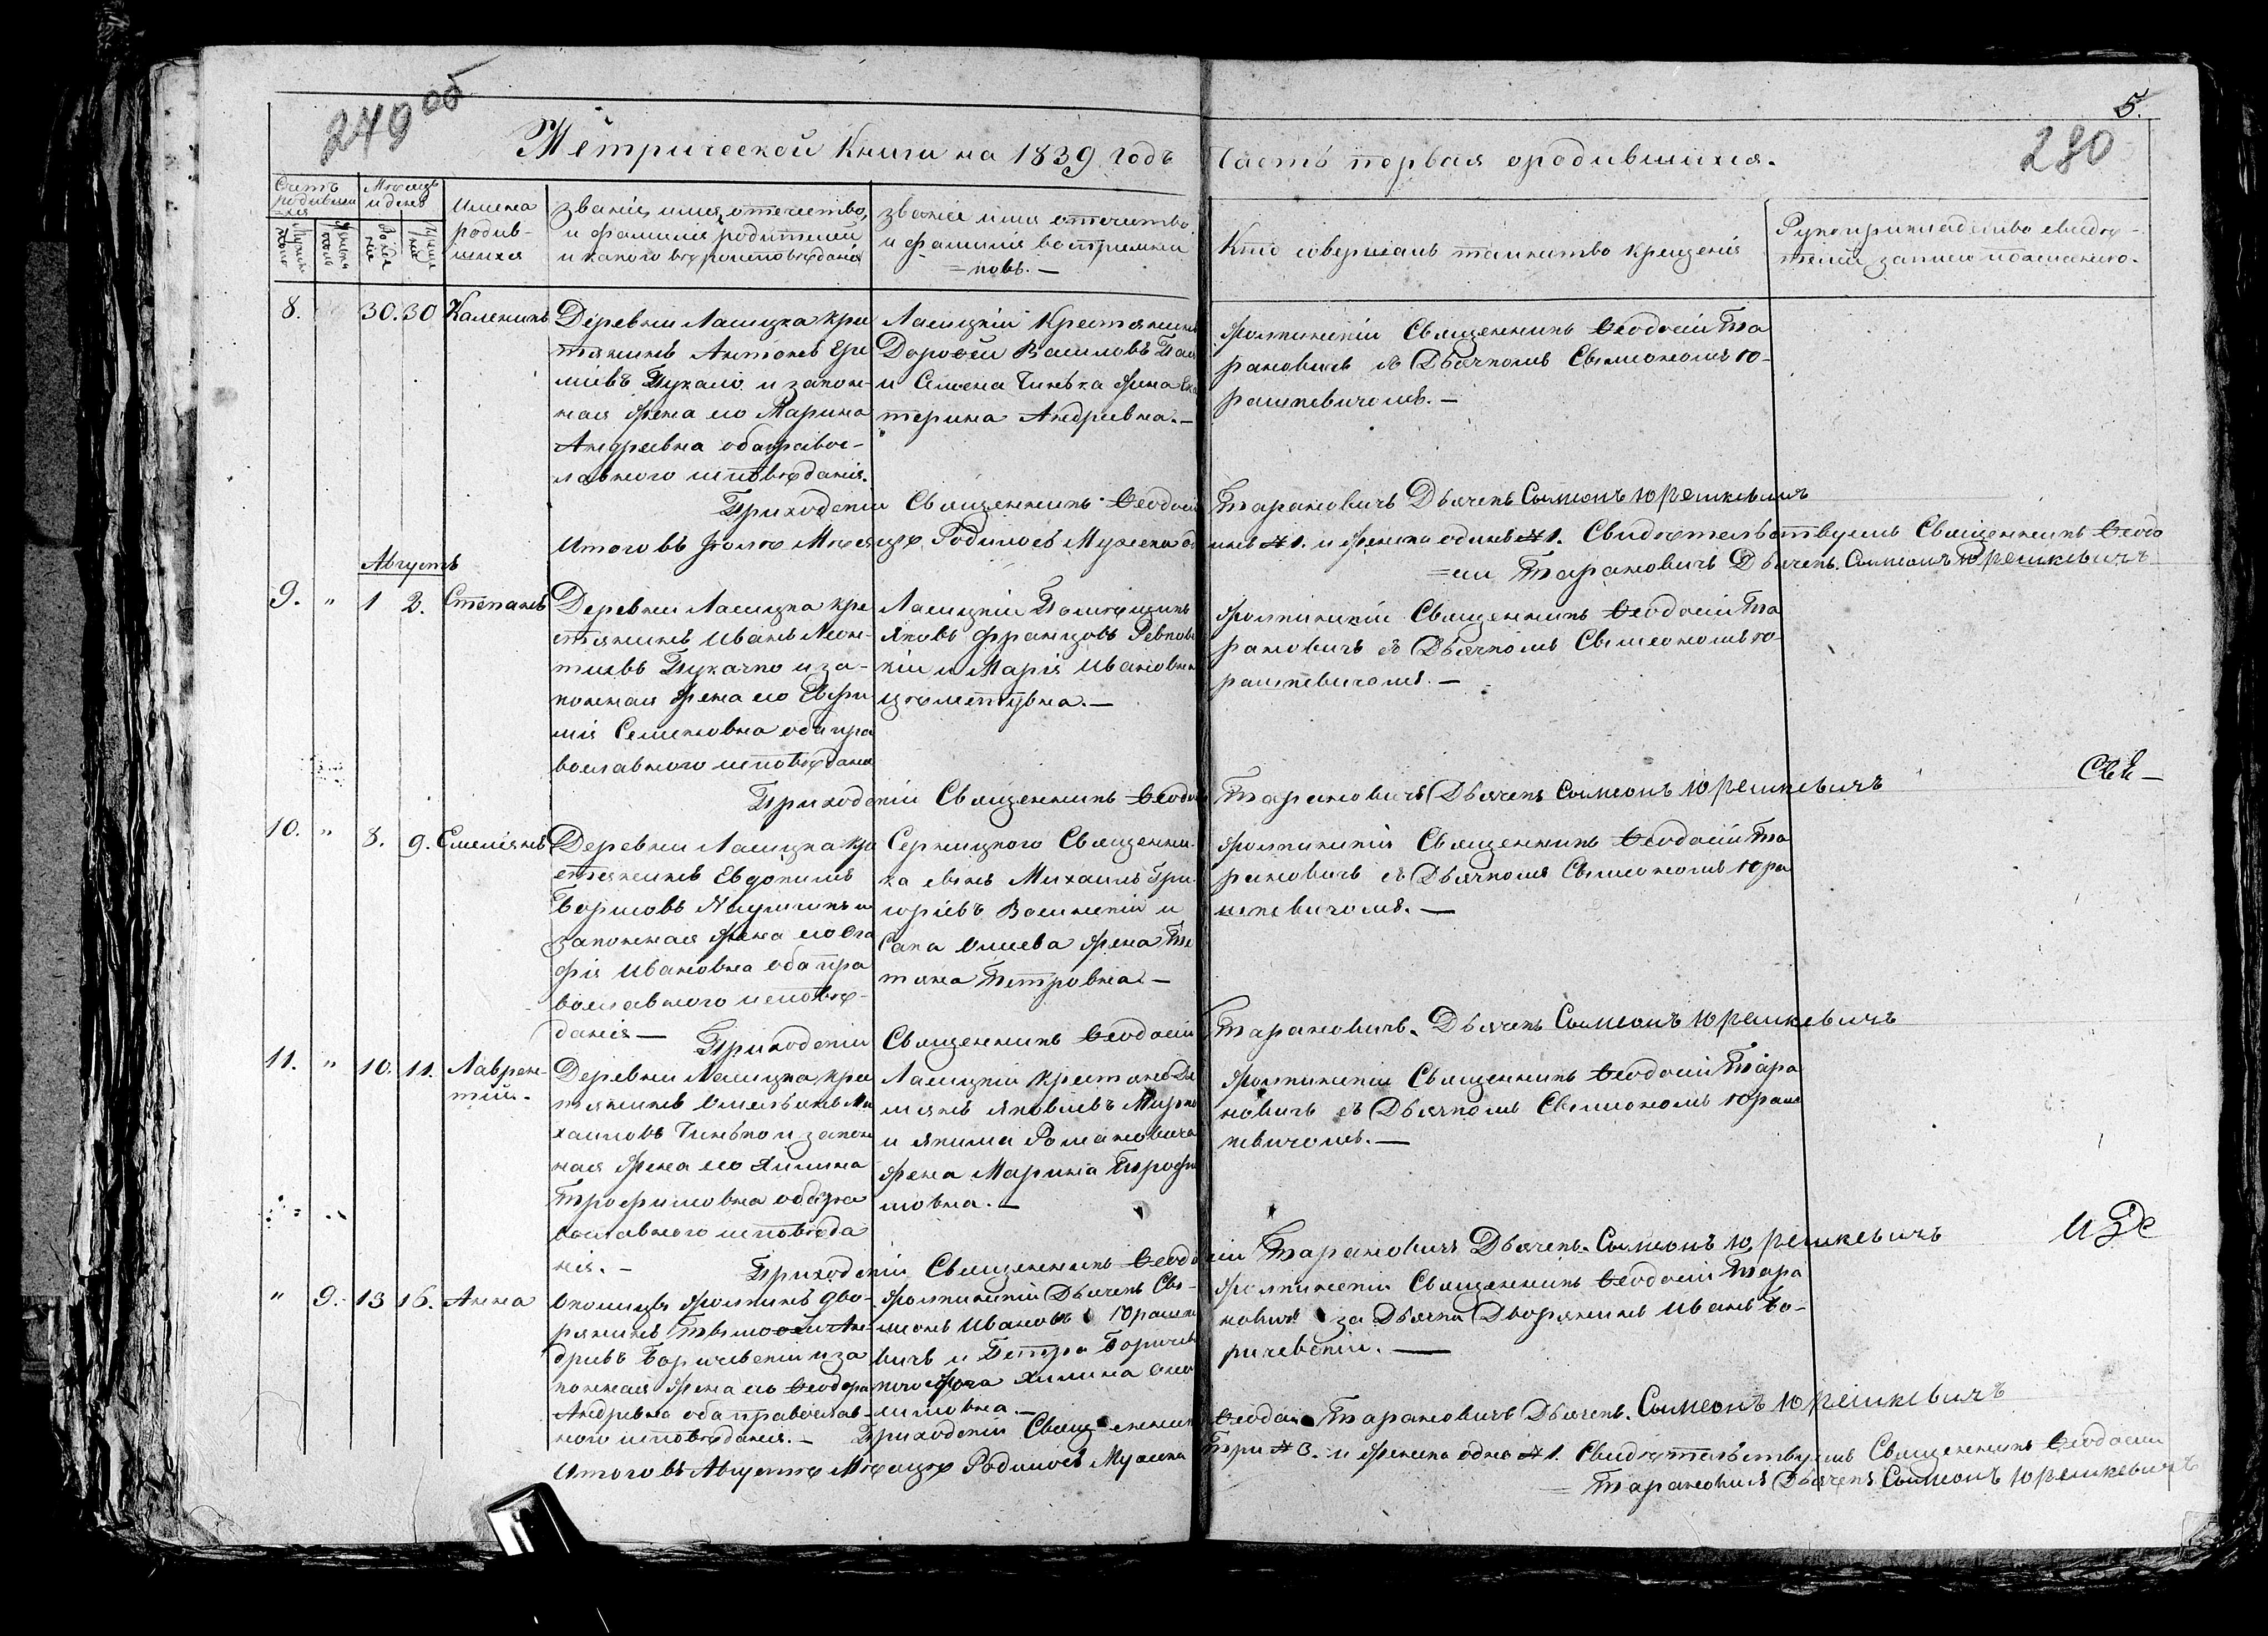 249 об
5.
280
Метрической Книги на 1839 годъ
Часть первая ородившихся.
Счетъ родивши=хся
Мѣсяцъ и день
Имена родив-шихся
Званіе, имя, отечество,
и фамилія родителей
и какого вѣроисповѣданія
Званіе имя отечество
и фамилія воспріемни
=ковъ. —
Кто совершалъ таинство крещенія
Рукоприкладство свидѣ-
телей записи пожеланію.
8. 30. 30 Каленикъ
Деревни Ласицка кре
стянинъ Антонъ Ере
міевъ Пукало и закон-
ная жена его Марина
Андреевна оба правос-
лавного исповѣданія.
Ласицкій Крестянинъ
Дорофей Василовъ
и Семена Чинька жена Ека
терина Андреевна. —
Священникъ Ѳеодосій Та
рановичь съ Дьячкомъ Сѵмеономъ Ю-
рашкевичомъ. —
Приходскій Священникъ Ѳеодосій Тарановичъ Дьячекъ Сѵмеонъ Юрашкевичъ
Итого въ Іюлѣ Мѣсяцѣ Родилось Мужеска одинъ №1. и женска одинъ №1. Свидѣтельствуемъ Священникъ Ѳеодо
=сій Тарановичъ Дьячекъ Сѵмеонъ Юрашкевичъ
Августъ
9. " 1 2. Степанъ
Деревни Ласицка кре
стянинъ Иванъ Леон-
тіевъ Пукачко и за-
конная жена его Евфи
мія Семеновна оба пра
вославного исповѣданія
Ласицкій Помѣщикъ
Яковъ Францовъ
кій и Марія Ивановна
Священникъ Ѳеодосій Та
рановичъ съ Дьячкомъ Сѵмеономъ Ю-
рашкевичомъ. —
Свѣ-
Приходскій Священникъ Ѳеодосій Тарановичъ Дьячекъ Сѵмеонъ Юрашкевичъ
10. " 8. 9. Емеліянъ
Деревни Ласицка кре
стянинъ Евдокимъ
Борисовъ
законная жена его Ага
фія Ивановна оба пра
вославного исповѣ-
данія —
Серницкого Священни-
ка сынъ Михаилъ Гри-
горіевъ и
жена Та
тіана Петровна —
Священникъ Ѳеодосій Та
рановичъ съ Дьячкомъ Сѵмеономъ Юра
шкевичомъ. —
Приходскій Священникъ Ѳеодосій Тарановичъ. Дьячекъ Сѵмеонъ Юрашкевичъ
11. " 10. 11. Лаврен-
тій.
Деревни Ласицка кре
стянинъ Омельянъ Ми
хаиловъ Чинько и закон
ная жена его Акилина
Трофимовна оба пра
вославного исповѣда
нія. —
Ласицкій крестянинъ
Яковлевъ
и Якима Романовича
жена Марина Трофи
мовна. —
Священникъ Ѳеодосій Тара
новичъ съ Дьячкомъ Сѵмеономъ Юраш
кевичомъ. —
Приходскій Священникъ Ѳеодосій Тарановичъ Дьячекъ. Сѵмеонъ Юрашкевичъ
" 9. 13 16. Анна
Околицы дво-
рянинъ Тимофей Ан-
дреевъ Боричевскій и за
конная жена его Ѳеодора
Андреевна оба православ-
ного исповѣданія. —
Дьячекъ Сѵ-
меонъ Ивановъ Юрашке
вичъ и Петра Боричев
кого жена Акилина
Священникъ Ѳеодосій Тара
новичъ за Дьячка Дворянинъ Иванъ Бо-
ричевскій. —
Приходскій Священникъ Ѳеодосій Тарановичъ Дьячекъ. Сѵмеонъ Юрашкевичъ
Итого въ Августѣ Мѣсяцѣ Родилось Мужеска Три №3. и женска одна №1. Свидѣтельствуемъ Священникъ Ѳеодосій
= Тарановичъ Дьячекъ Сѵмеонъ Юрашкевичъ